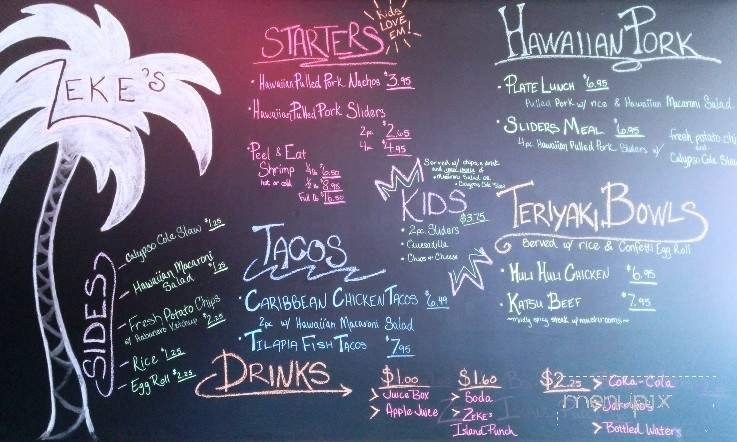 ZEKE'S
STARTERS
Kids LOVE EM!
• Hawaiian Pulled Pork Nachos $3.95
• Hawaiian Pulled Pork Sliders
2pc $2.65
4pc $4.95
• Peel & Eat
Shrimp 1/4 lb $6.50
hot or cold 1/2 lb 8.95
Full lb $16.50
HAWAIIAN PORK
• PLATE LUNCH $6.95
Pulled Pork w/ rice & Hawaiian Macaroni Salad
• SLIDERS MEAL $6.95
4pc Hawaiian Pulled Pork Sliders w/ fresh potato chips
and
Calypso Cole Slaw
KIDS $3.75
Served w/ chips, a drink
and your choice of
• Macaroni Salad or
• Calypso Cole Slaw
• 2pc Sliders
• Quesadilla
• Chips & Cheese
TERIYAKI BOWLS
Served w/ rice & Confetti Egg Roll
• HULI HULI CHICKEN $6.95
• KATSU BEEF $7.95
~mildly spicy steak w/ mushrooms~
TACOS
• CARIBBEAN CHICKEN TACOS $6.49
2pc w/ Hawaiian Macaroni Salad
• TILAPIA FISH TACOS $7.95
SIDES
Calypso Cole Slaw $1.25
Hawaiian Macaroni
Salad $1.25
Fresh Potato Chips
w/ Habanero Ketchup $2.25
Rice $1.25
Egg Roll $2.25
DRINKS
$1.00
> Juice Box
> Apple Juice
$1.60
> Soda
> ZEKE'S
Island Punch
$2.25
> Coka-Cola
> Jarritos
> Bottled Waters
menupix